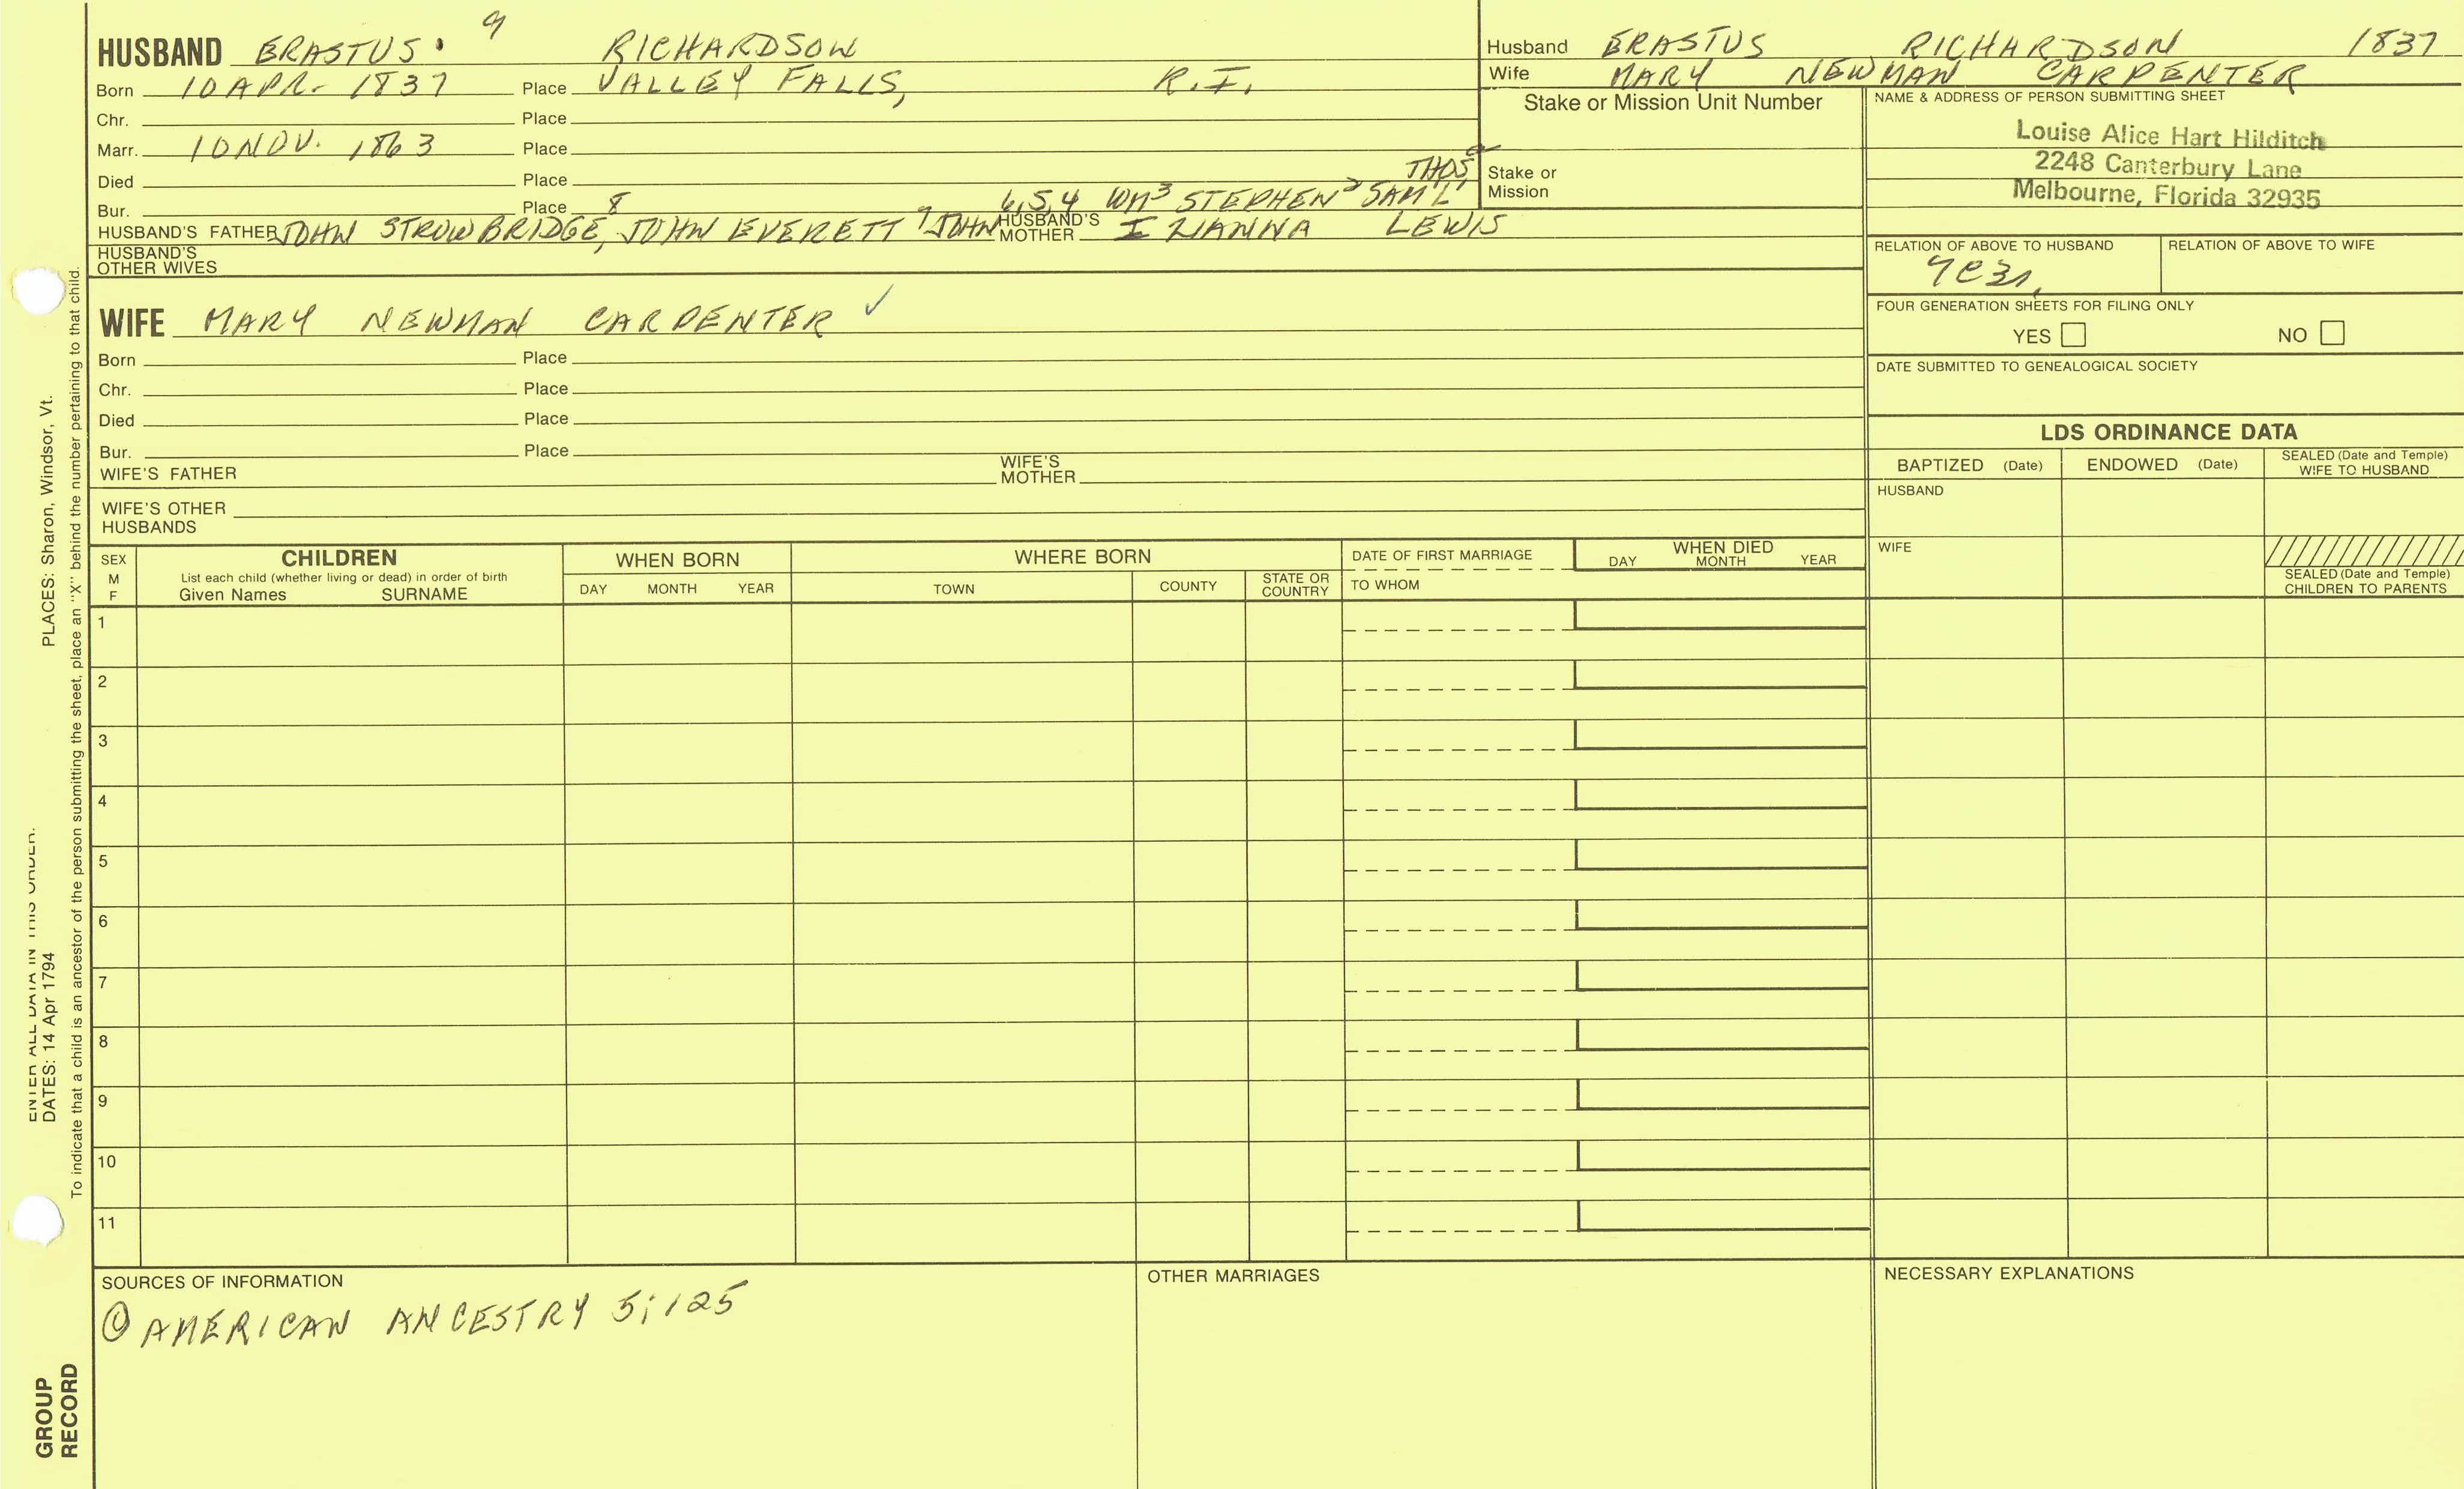 HUSBAND ERASTUS. 9 RICHARDSON
Born 10 APR- 1837 Place VALLEY FALLS, R.I.
Chr. Place
Marr. 10 NOV. 1863 Place
Died Place THOS
Bur. Place 8 6,5,4 WM3 STEPHEN2 SAM'L1
HUSBAND'S FATHER JOHN STROWBRIDGE, JOHN EVERETT 7 JOHN HUSBAND'S MOTHER IZIANNA LEWIS
HUSBAND'S OTHER WIVES
Husband ERASTUS RICHARDSON 1837
Wife MARY NEWMAN CARPENTER
Stake or Mission Unit Number
Stake or Mission
NAME & ADDRESS OF PERSON SUBMITTING SHEET
Louise Alice Hart Hilditch
2248 Canterbury Lane
Melbourne, Florida 32935
RELATION OF ABOVE TO HUSBAND RELATION OF ABOVE TO WIFE
FOUR GENERATION SHEETS FOR FILING ONLY
YES NO
DATE SUBMITTED TO GENEALOGICAL SOCIETY
WIFE MARY NEWMAN CARPENTER ✓
Born Place
Chr. Place
Died Place
Bur. Place
WIFE'S FATHER WIFE'S MOTHER
WIFE'S OTHER HUSBANDS
LDS ORDINANCE DATA
BAPTIZED (Date) ENDOWED (Date) SEALED (Date and Temple) WIFE TO HUSBAND
HUSBAND
WIFE
SEALED (Date and Temple) CHILDREN TO PARENTS
SEX M F
CHILDREN
List each child (whether living or dead) in order of birth
Given Names SURNAME
WHEN BORN
DAY MONTH YEAR
WHERE BORN
TOWN COUNTY STATE OR COUNTRY
DATE OF FIRST MARRIAGE
TO WHOM
WHEN DIED
DAY MONTH YEAR
1
2
3
4
5
6
7
8
9
10
11
SOURCES OF INFORMATION
① AMERICAN ANCESTRY 5;125
OTHER MARRIAGES
NECESSARY EXPLANATIONS
ENTER ALL DATA IN THIS ORDER:
DATES: 14 Apr 1794 PLACES: Sharon, Windsor, Vt.
To indicate that a child is an ancestor of the person submitting the sheet, place an "X" behind the number pertaining to that child.
GROUP
RECORD